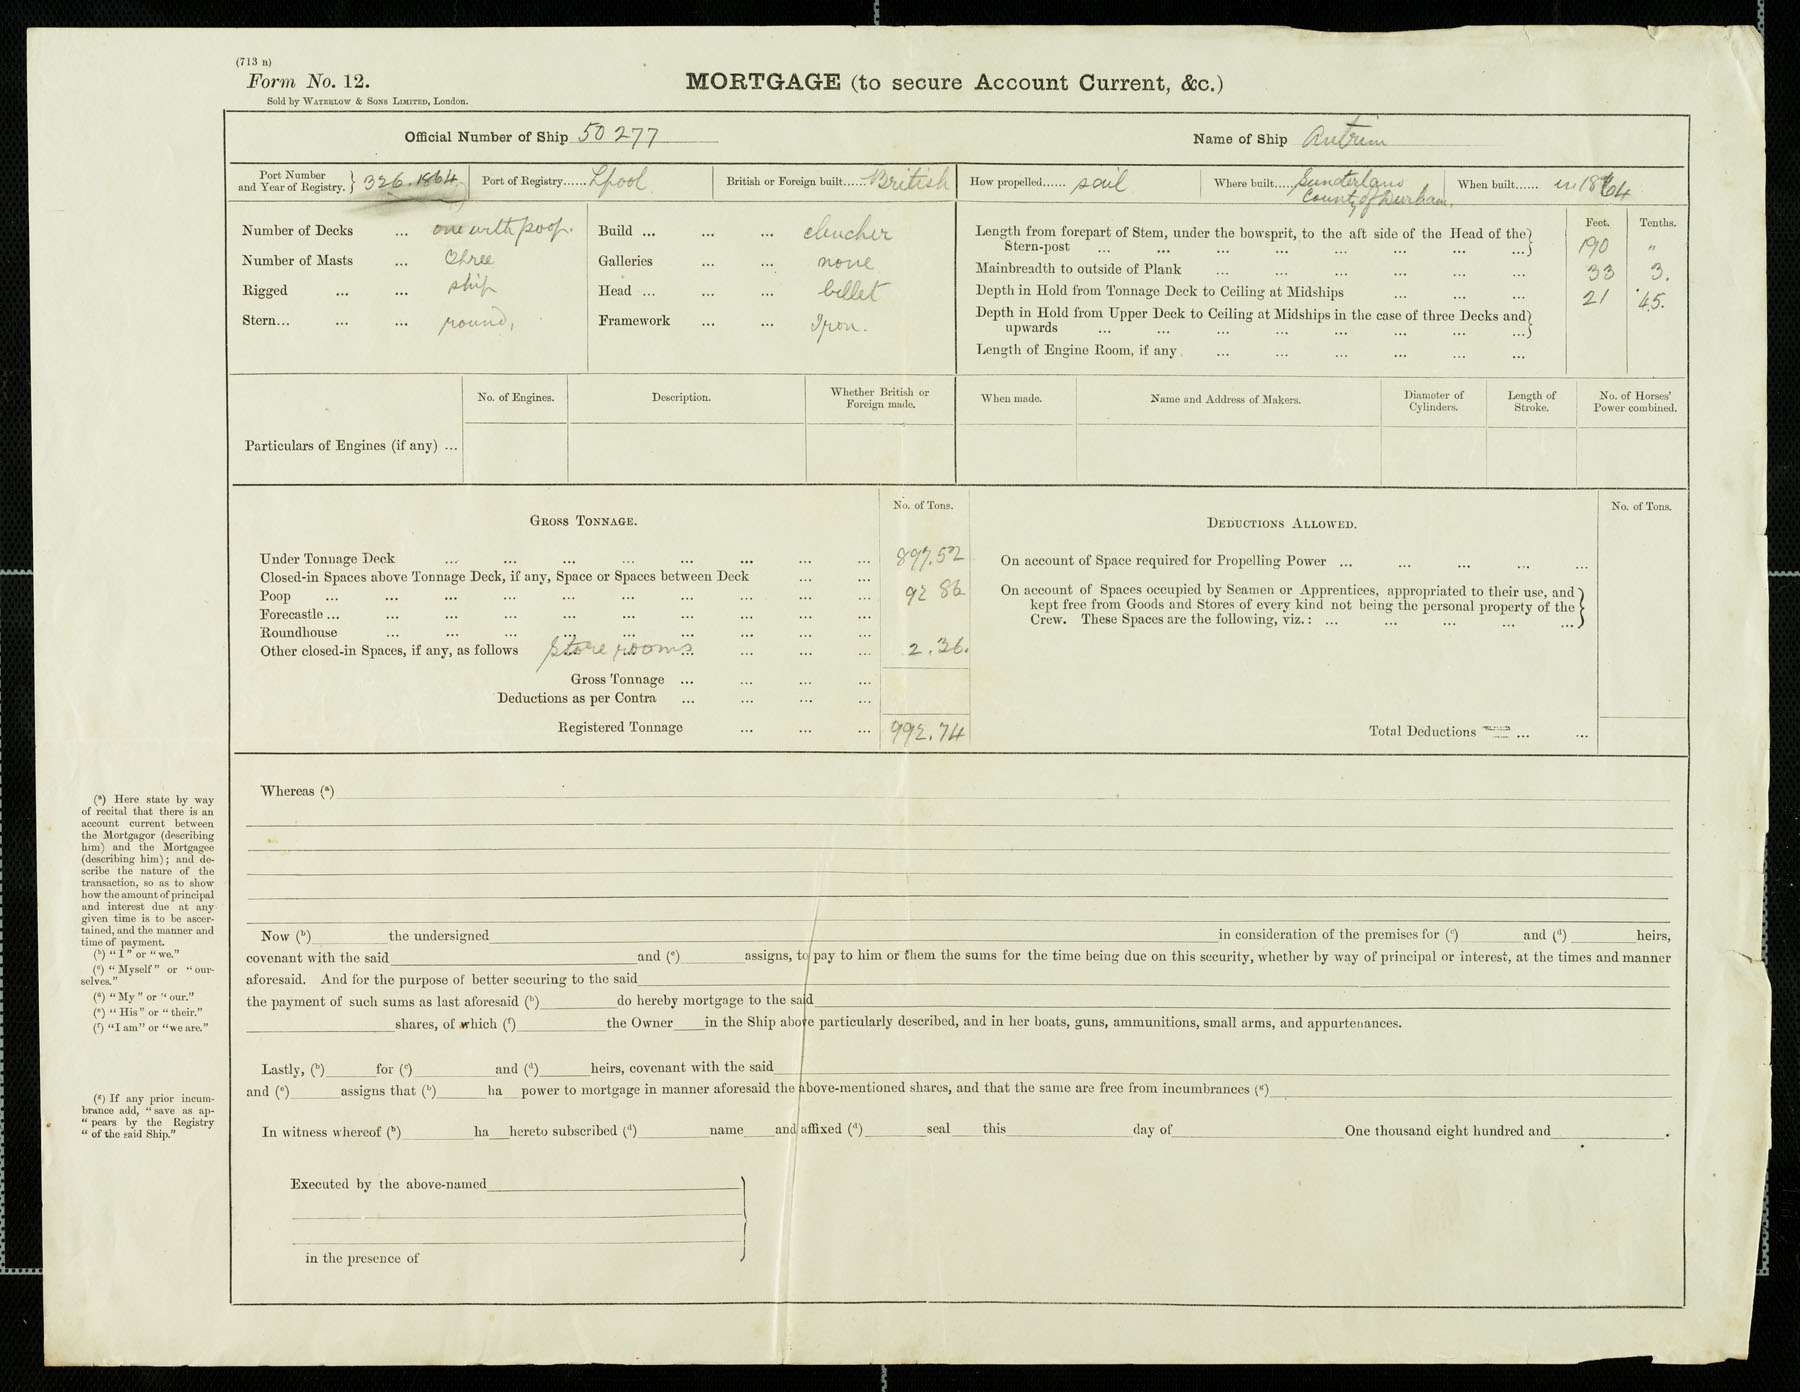 (713 B)
Form No. 12.
Sold by WATERLOW & SONS LIMITED, London.
MORTGAGE (to secure Account Current, &c.)
Official Number of Ship 50277
Name of Ship Antrim
Port Number and Year of Registry. } 326. 1864
Port of Registry...... Lpool
British or Foreign built...... British
How propelled...... sail
Where built..... Sunderland County of Durham.
When built...... in 1864
Number of Decks ... one with poop.
Number of Masts ... three
Rigged ... ... ship
Stern... ... ... round,
Build ... ... ... clencher
Galleries ... ... none
Head ... ... ... billet
Framework ... ... Iron.
Feet. Tenths.
Length from forepart of Stem, under the bowsprit, to the aft side of the Head of the
Stern-post ... ... ... ... ... ... ... ...} 190 "
Mainbreadth to outside of Plank ... ... ... ... ... ... 33 3.
Depth in Hold from Tonnage Deck to Ceiling at Midships ... ... ... 21 .45.
Depth in Hold from Upper Deck to Ceiling at Midships in the case of three Decks and
upwards ... ... ... ... ... ... ... ...}
Length of Engine Room, if any ... ... ... ... ... ...
No. of Engines. Description. Whether British or Foreign made. When made. Name and Address of Makers. Diameter of Cylinders. Length of Stroke. No. of Horses' Power combined.
Particulars of Engines (if any) ...
GROSS TONNAGE. No. of Tons.
Under Tonnage Deck ... ... ... ... ... ... ... ... 897.52
Closed-in Spaces above Tonnage Deck, if any, Space or Spaces between Deck ... ...
Poop ... ... ... ... ... ... ... ... ... ... 92 86
Forecastle ... ... ... ... ... ... ... ... ... ...
Roundhouse ... ... ... ... ... ... ... ... ...
Other closed-in Spaces, if any, as follows Store rooms ... ... ... 2.36.
Gross Tonnage ... ... ... ...
Deductions as per Contra ... ... ... ...
Registered Tonnage ... ... ... 992.74
DEDUCTIONS ALLOWED. No. of Tons.
On account of Space required for Propelling Power ... ... ... ... ...
On account of Spaces occupied by Seamen or Apprentices, appropriated to their use, and
kept free from Goods and Stores of every kind not being the personal property of the
Crew. These Spaces are the following, viz.: ... ... ... ... ...}
Total Deductions ... ...
Whereas (a)
Now (b) the undersigned in consideration of the premises for (c) and (d) heirs,
covenant with the said and (e) assigns, to pay to him or them the sums for the time being due on this security, whether by way of principal or interest, at the times and manner
aforesaid. And for the purpose of better securing to the said
the payment of such sums as last aforesaid (b) do hereby mortgage to the said
shares, of which (f) the Owner in the Ship above particularly described, and in her boats, guns, ammunitions, small arms, and appurtenances.
Lastly, (b) for (c) and (d) heirs, covenant with the said
and (e) assigns that (b) ha power to mortgage in manner aforesaid the above-mentioned shares, and that the same are free from incumbrances (g)
In witness whereof (b) ha hereto subscribed (d) name and affixed (d) seal this day of One thousand eight hundred and .
Executed by the above-named
in the presence of
(a) Here state by way
of recital that there is an
account current between
the Mortgagor (describing
him) and the Mortgagee
(describing him); and de-
scribe the nature of the
transaction, so as to show
how the amount of principal
and interest due at any
given time is to be ascer-
tained, and the manner and
time of payment.
(b) "I" or "we."
(c) "Myself" or "our-
selves."
(d) "My" or "our."
(e) "His" or "their."
(f) "I am" or "we are."
(g) If any prior incum-
brance add, "save as ap-
"pears by the Registry
"of the said Ship."